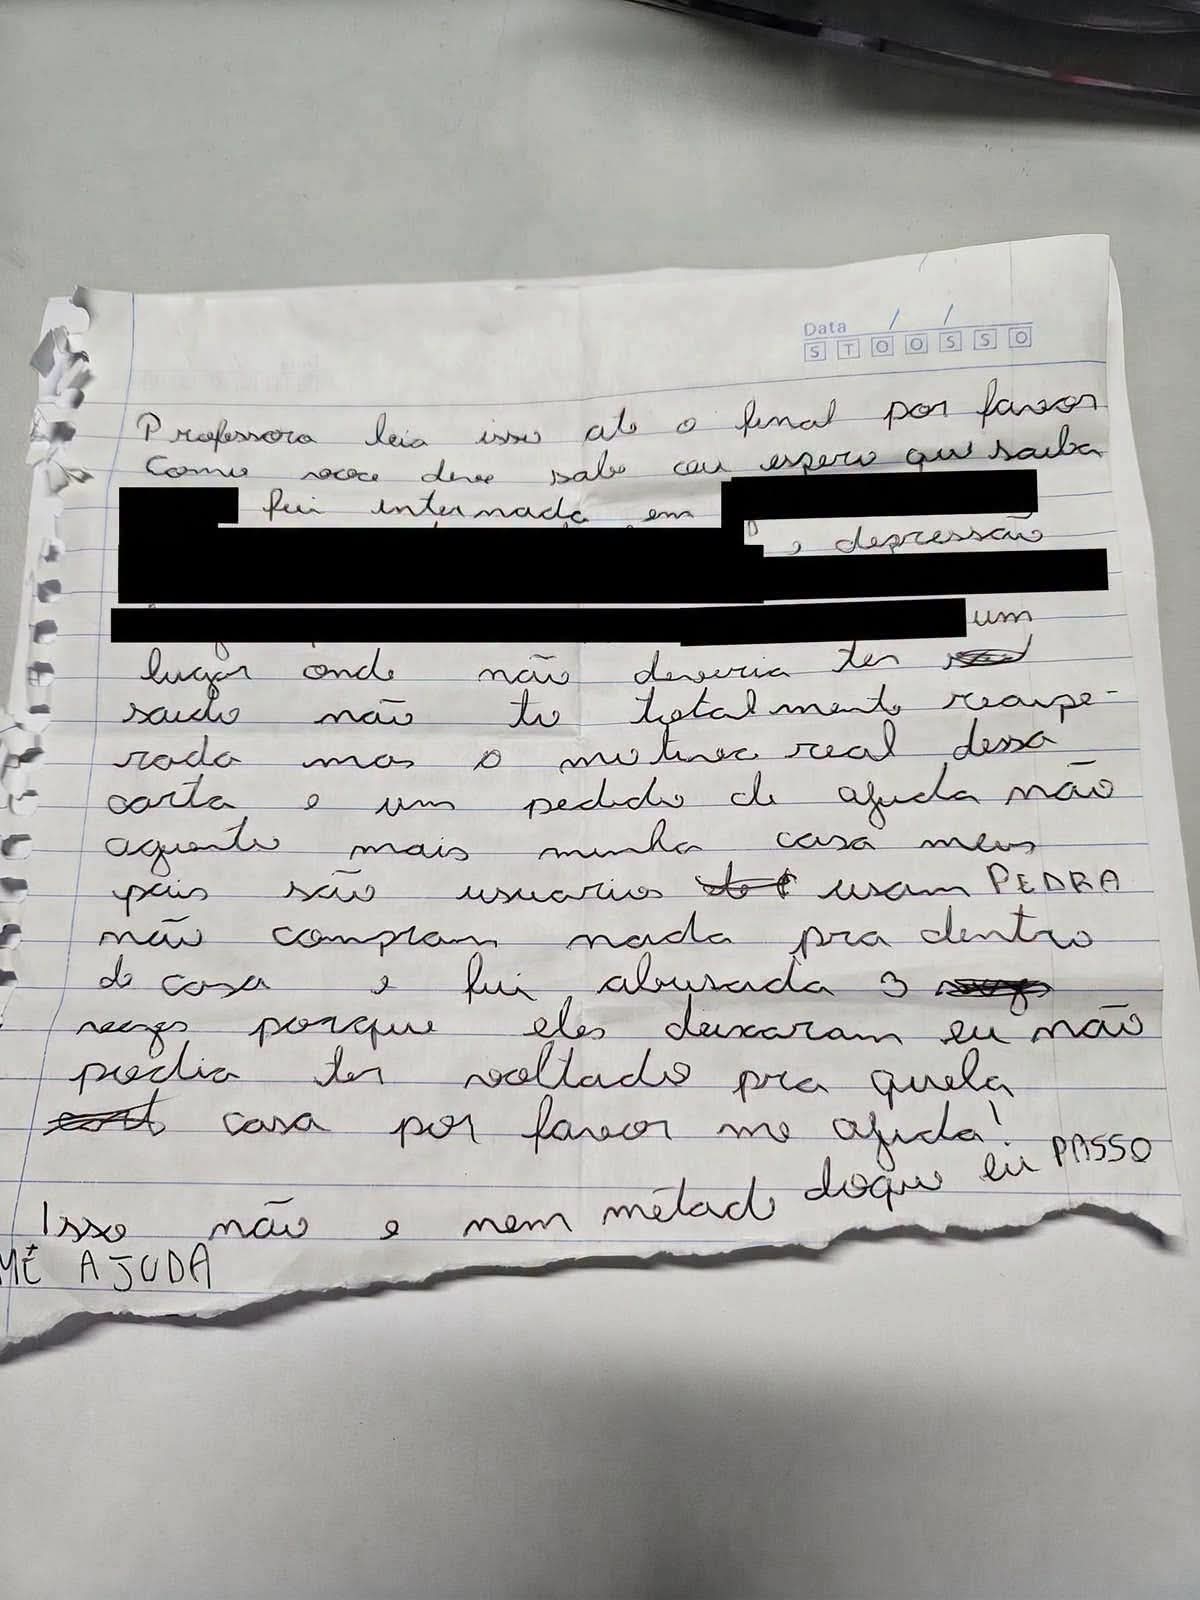 Data / /
S T Q Q S S D
Professora leia isso até o final por favor
Como voce deve sabe ou espero que saiba
fui internada em
, depressão
um
lugar onde não deveria ter
saido não to totalmente recupe-
rada mas o motivo real dessa
carta e um pedido de ajuda não
aguento mais minha casa meus
pais são usuarios usam PEDRA
não compram nada pra dentro
de casa e fui abusada 3
vezes porque eles deixaram eu não
podia ter voltado pra quela
casa por favor me ajuda!
Isso não e nem metade doque eu PASSO
ME AJUDA